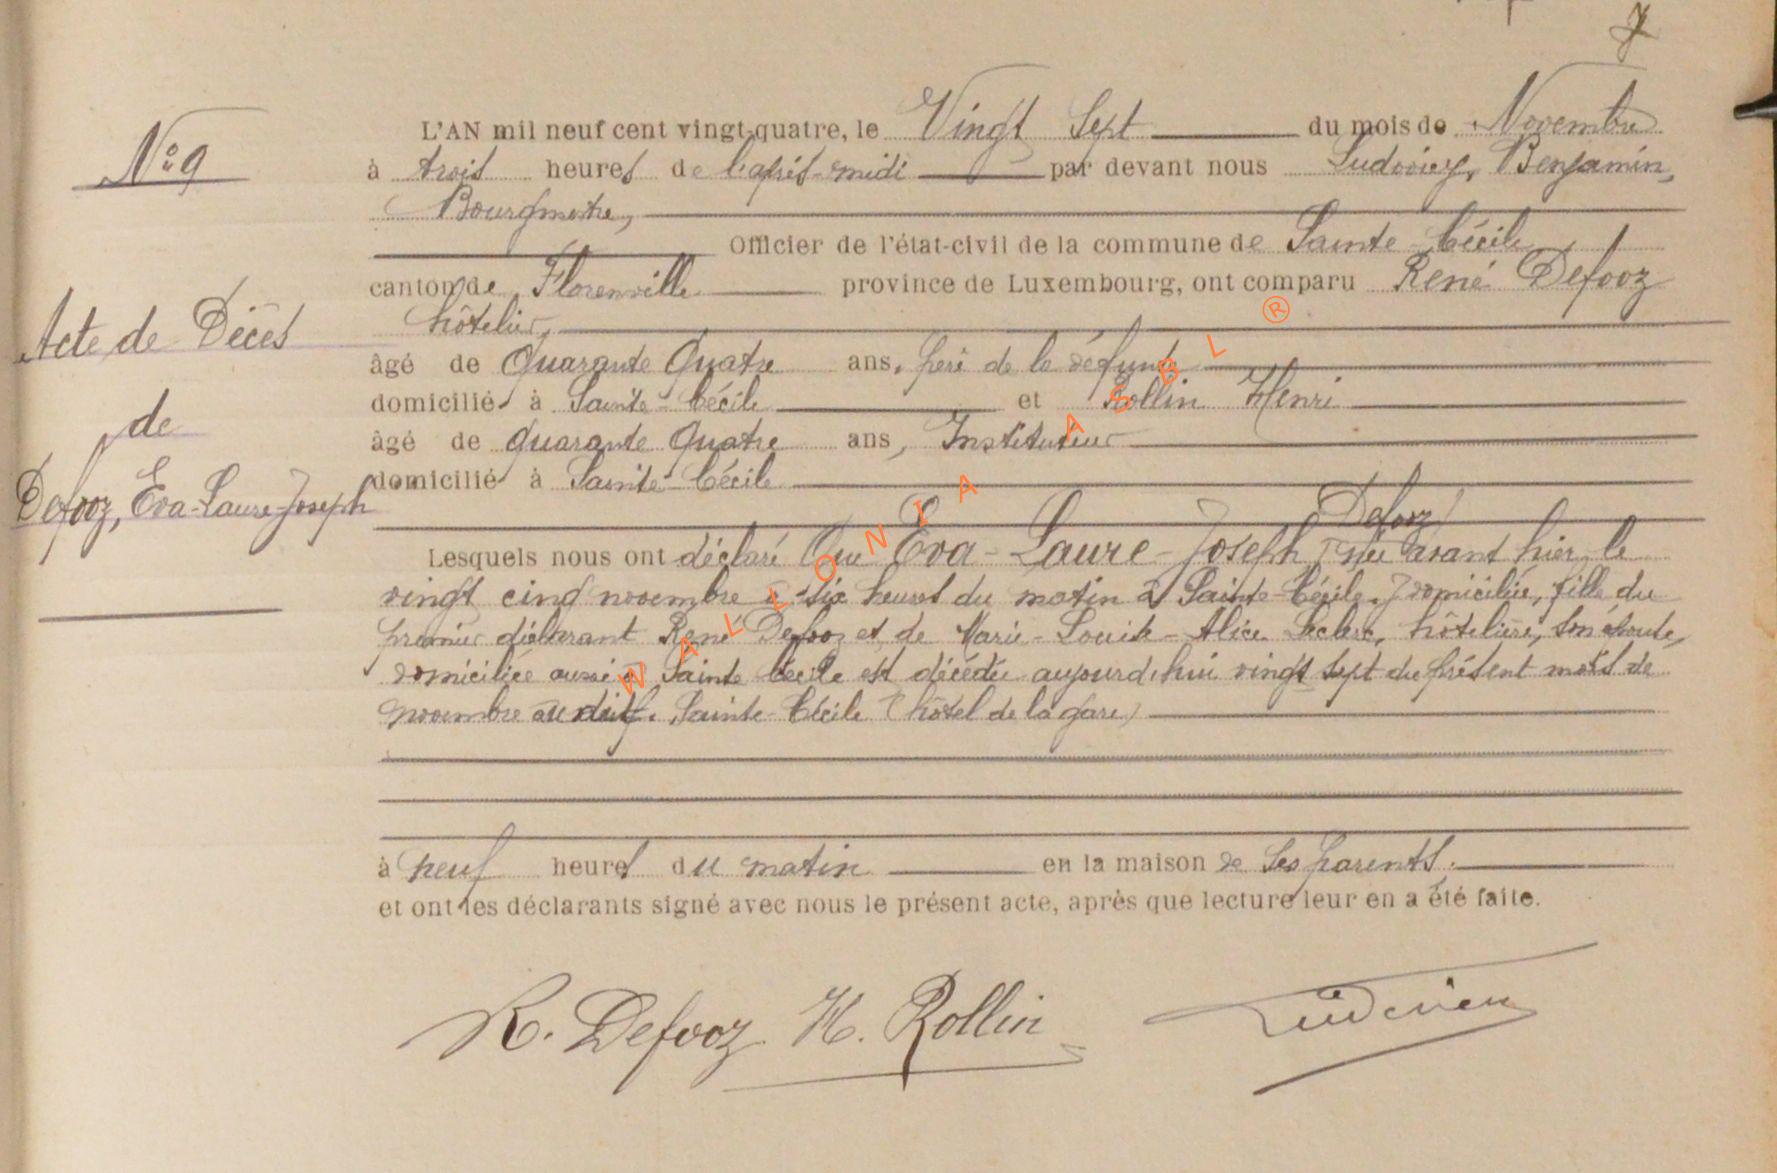 7
N° 9
Acte de Décès
de
Defooz, Eva-Laure-Joseph
L'AN mil neuf cent vingt-quatre, le Vingt Sept du mois de Novembre
à trois heures de l'après-midi par devant nous Ludovicy, Benjamin,
Bourgmestre,
Officier de l'état-civil de la commune de Sainte-Cécile
canton de Florenville province de Luxembourg, ont comparu René Defooz
hôtelier,
âgé de Quarante Quatre ans, père de la défunte
domicilié à Sainte-Cécile et Rollin Henri
âgé de Quarante Quatre ans, Instituteur
domicilié à Sainte-Cécile
Defooz
Lesquels nous ont déclaré Que Eva-Laure-Joseph, née avant hier, le
vingt cinq novembre à six heures du matin à Sainte-Cécile, y domiciliée, fille du
premier déclarant René Defooz et de Marie-Louise-Alice Leclerc, hôtelière, son épouse,
domiciliée aussi à Sainte Cécile est décédée aujourd'hui vingt sept du présent mois de
novembre Sainte-Cécile (hôtel de la gare)
à neuf heures du matin en la maison de ses parents.
et ont les déclarants signé avec nous le présent acte, après que lecture leur en a été faite.
R. Defooz H. Rollin
WALLONIA ASBL ®